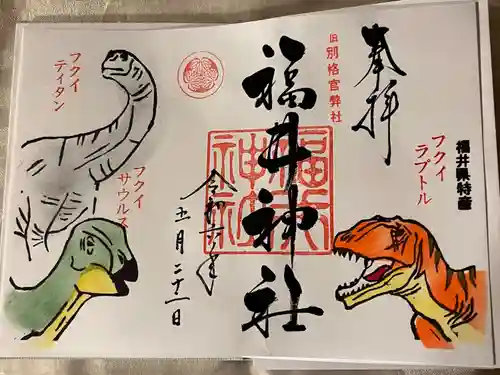 奉拝
福井県特産
フクイ
ラプトル
旧別格官弊社
福井神社
福井
神社
令和六年
五月二十一日
フクイ
サウルス
フクイ
ティタン